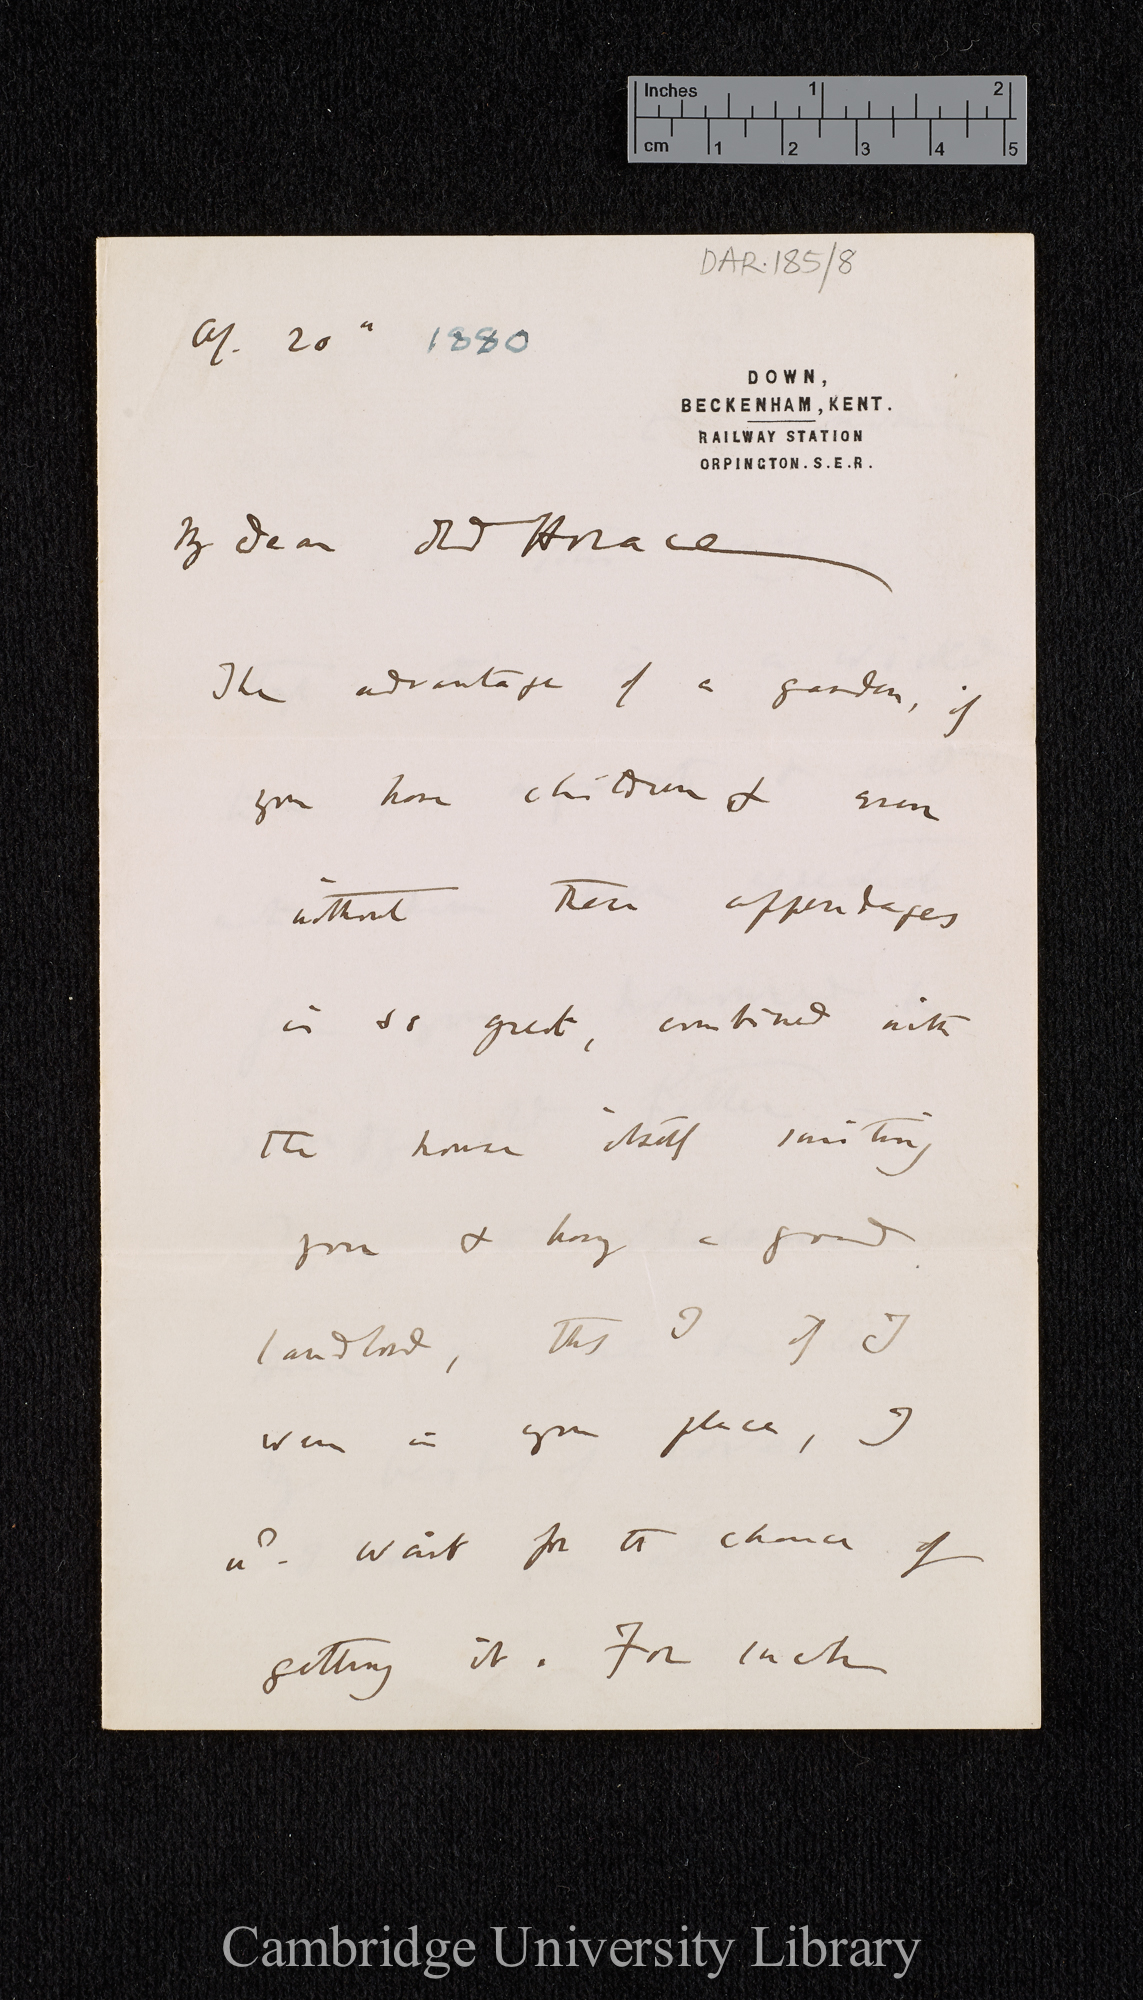 Inches 1 2
cm 1 2 3 4 5
DAR.185/8
Ap. 20th 1880
DOWN,
BECKENHAM, KENT.
RAILWAY STATION
ORPINGTON. S.E.R.
My dear old Horace
The advantage of a garden, if
you have children & even
without these appendages
is so great, combined with
the house itself suiting
you & havg a good
landlord, tht I if I
were in your place, I
wd. wait for the chance of
getting it. For such
Cambridge University Library